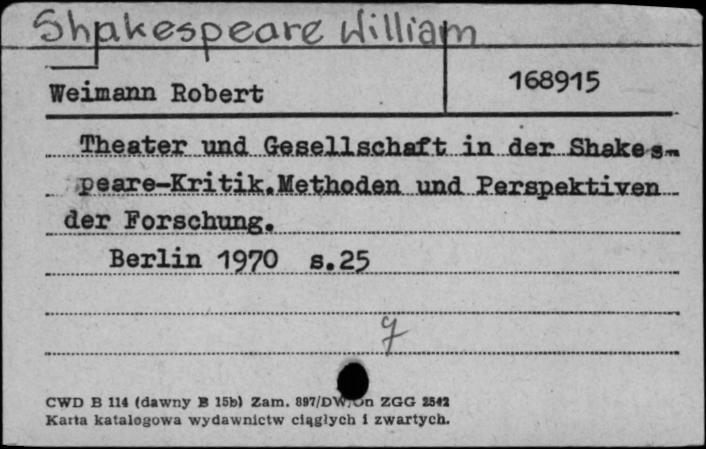 Shakespeare William
Weimann Robert
168915
Theater und Gesellschaft in der Shakes-
peare-Kritik.Methoden und Perspektiven
der Forschung.
Berlin 1970 s.25
CWD B 114 (dawny B 15b) Zam. 897/DW/On ZGG 2542
Karta katalogowa wydawnictw ciągłych i zwartych.